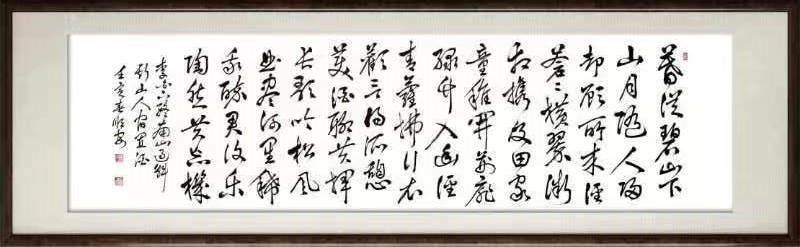 暮從碧山下
山月随人歸
却顧所来徑
蒼々横翠微
相携及田家
童稚開荊扉
緑竹入幽徑
青蘿拂行衣
歡言得所憩
美酒聊共揮
長歌吟松風
曲盡河星稀
我醉君復樂
陶然共忘機
李白下終南山過斛
斯山人宿置酒
壬寅春